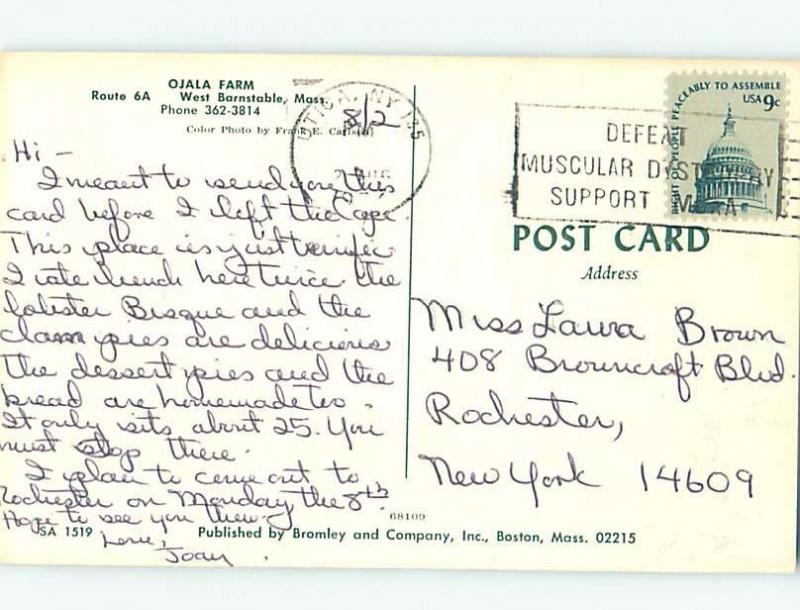 OJALA FARM
Route 6A West Barnstable, Mass.
Phone 362-3814
Color Photo by Frank E.
UTICA, NY 135
8/2
DEFEAT
MUSCULAR DYSTROPHY
SUPPORT MDA
RIGHT OF PEOPLE PEACEABLY TO ASSEMBLE
USA 9c
Hi —
I meant to send you this
card before I left the Cape.
This place is just terrific
I ate lunch here twice. The
lobster Bisque and the
clam pies are delicious
The dessert pies and the
bread are homemade too.
It only sits about 25. You
must stop there.
I plan to come out to
Rochester on Monday the 8th.
Hope to see you then.
Love,
Joan.
POST CARD
Address
Miss Laura Brown
408 Browncroft Blvd.
Rochester,
New York 14609
68109
SA 1519
Published by Bromley and Company, Inc., Boston, Mass. 02215